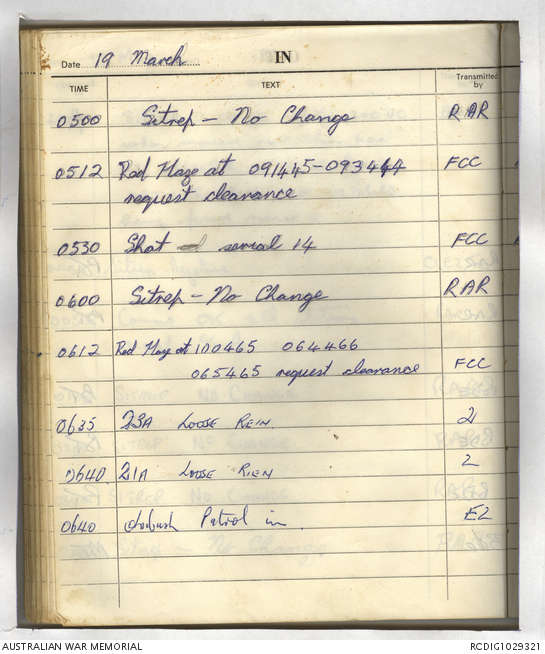 Date 19 March IN
TIME TEXT Transmitted by
0500 Sitrep - No Change RAR
0512 Red Haze at 091445-093444 FCC
request clearance
0530 Shot serial 14 FCC
0600 Sitrep - No Change RAR
0612 Red Haze at 100465 064466
065465 request clearance FCC
0635 23A LOOSE REIN. 2
0640 21A LOOSE RIEN 2
0640 Ambush Patrol in E2
AUSTRALIAN WAR MEMORIAL RCDIG1029321